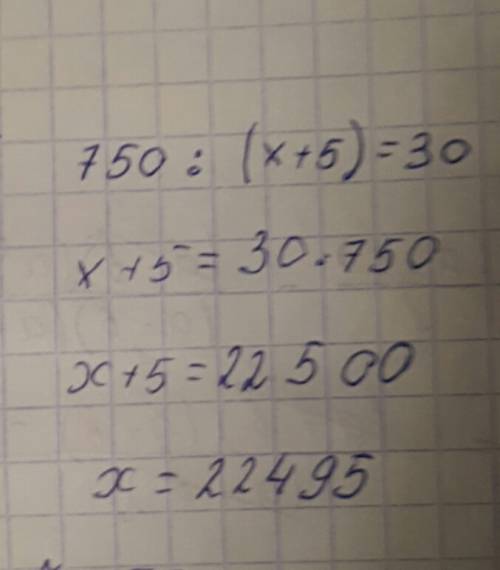 750 : (x+5)=30
x+5=30·750
x+5=22500
x=22495